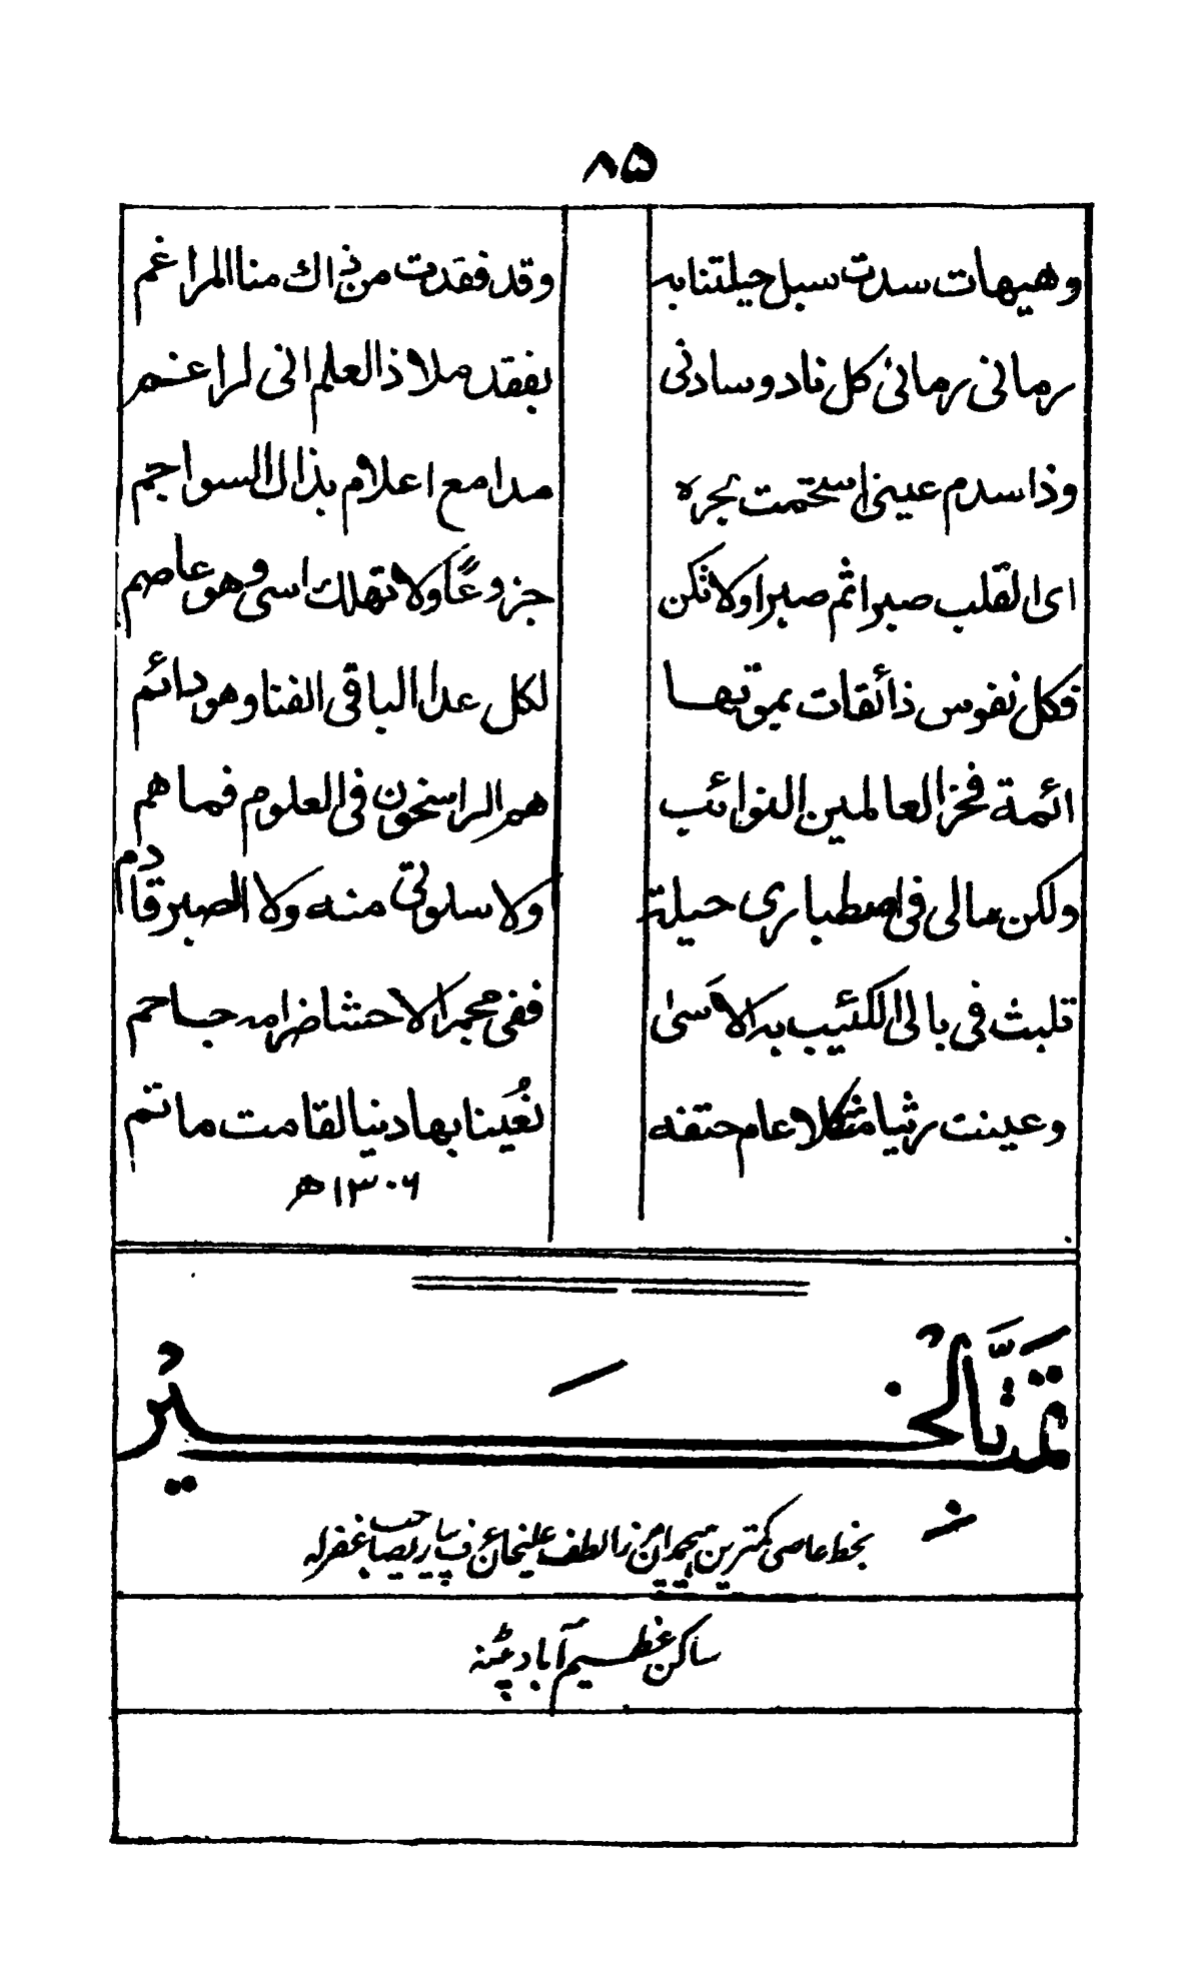 ۸۵
وهيهات سدت سبل حيلتنا به وقد فقدت من ذاك منا المراغم
رمانى رمانى كل ناد وسادنى بفقد ملاذ العلم انى لراغم
وذا سدم عينى استحمت بجره مدامع اعلام بذاك السواجم
اى القلب صبرا ثم صبرا ولا تكن جزوعًا ولا تهلك اسى وهو عاصم
فكل نفوس ذائقات بموتها لكل عدا الباقى الفنا وهو دائم
ائمة فخر العالمين النوائب هم الراسخون فى العلوم فما هم
ولكن مالى فى اصطبارى حيلة ولا سلوتى منه ولا الصبر قادم
تلبث فى بالى الكئيب به الاَسىٰ ففى مجمر الاحشا ضرامه جاحم
وعينت رثيا مثكلا عام حتفه نُعَينا بها دنيا لقامت ماتم
۱۳۰۶ھ
تمَّتَّ بالخَيْر
بخط عاصى كمترين هيچمدان مرزا لطف عليخان عرف پيارے صاحب غفرله
ساكن عظيم آباد پٹنه